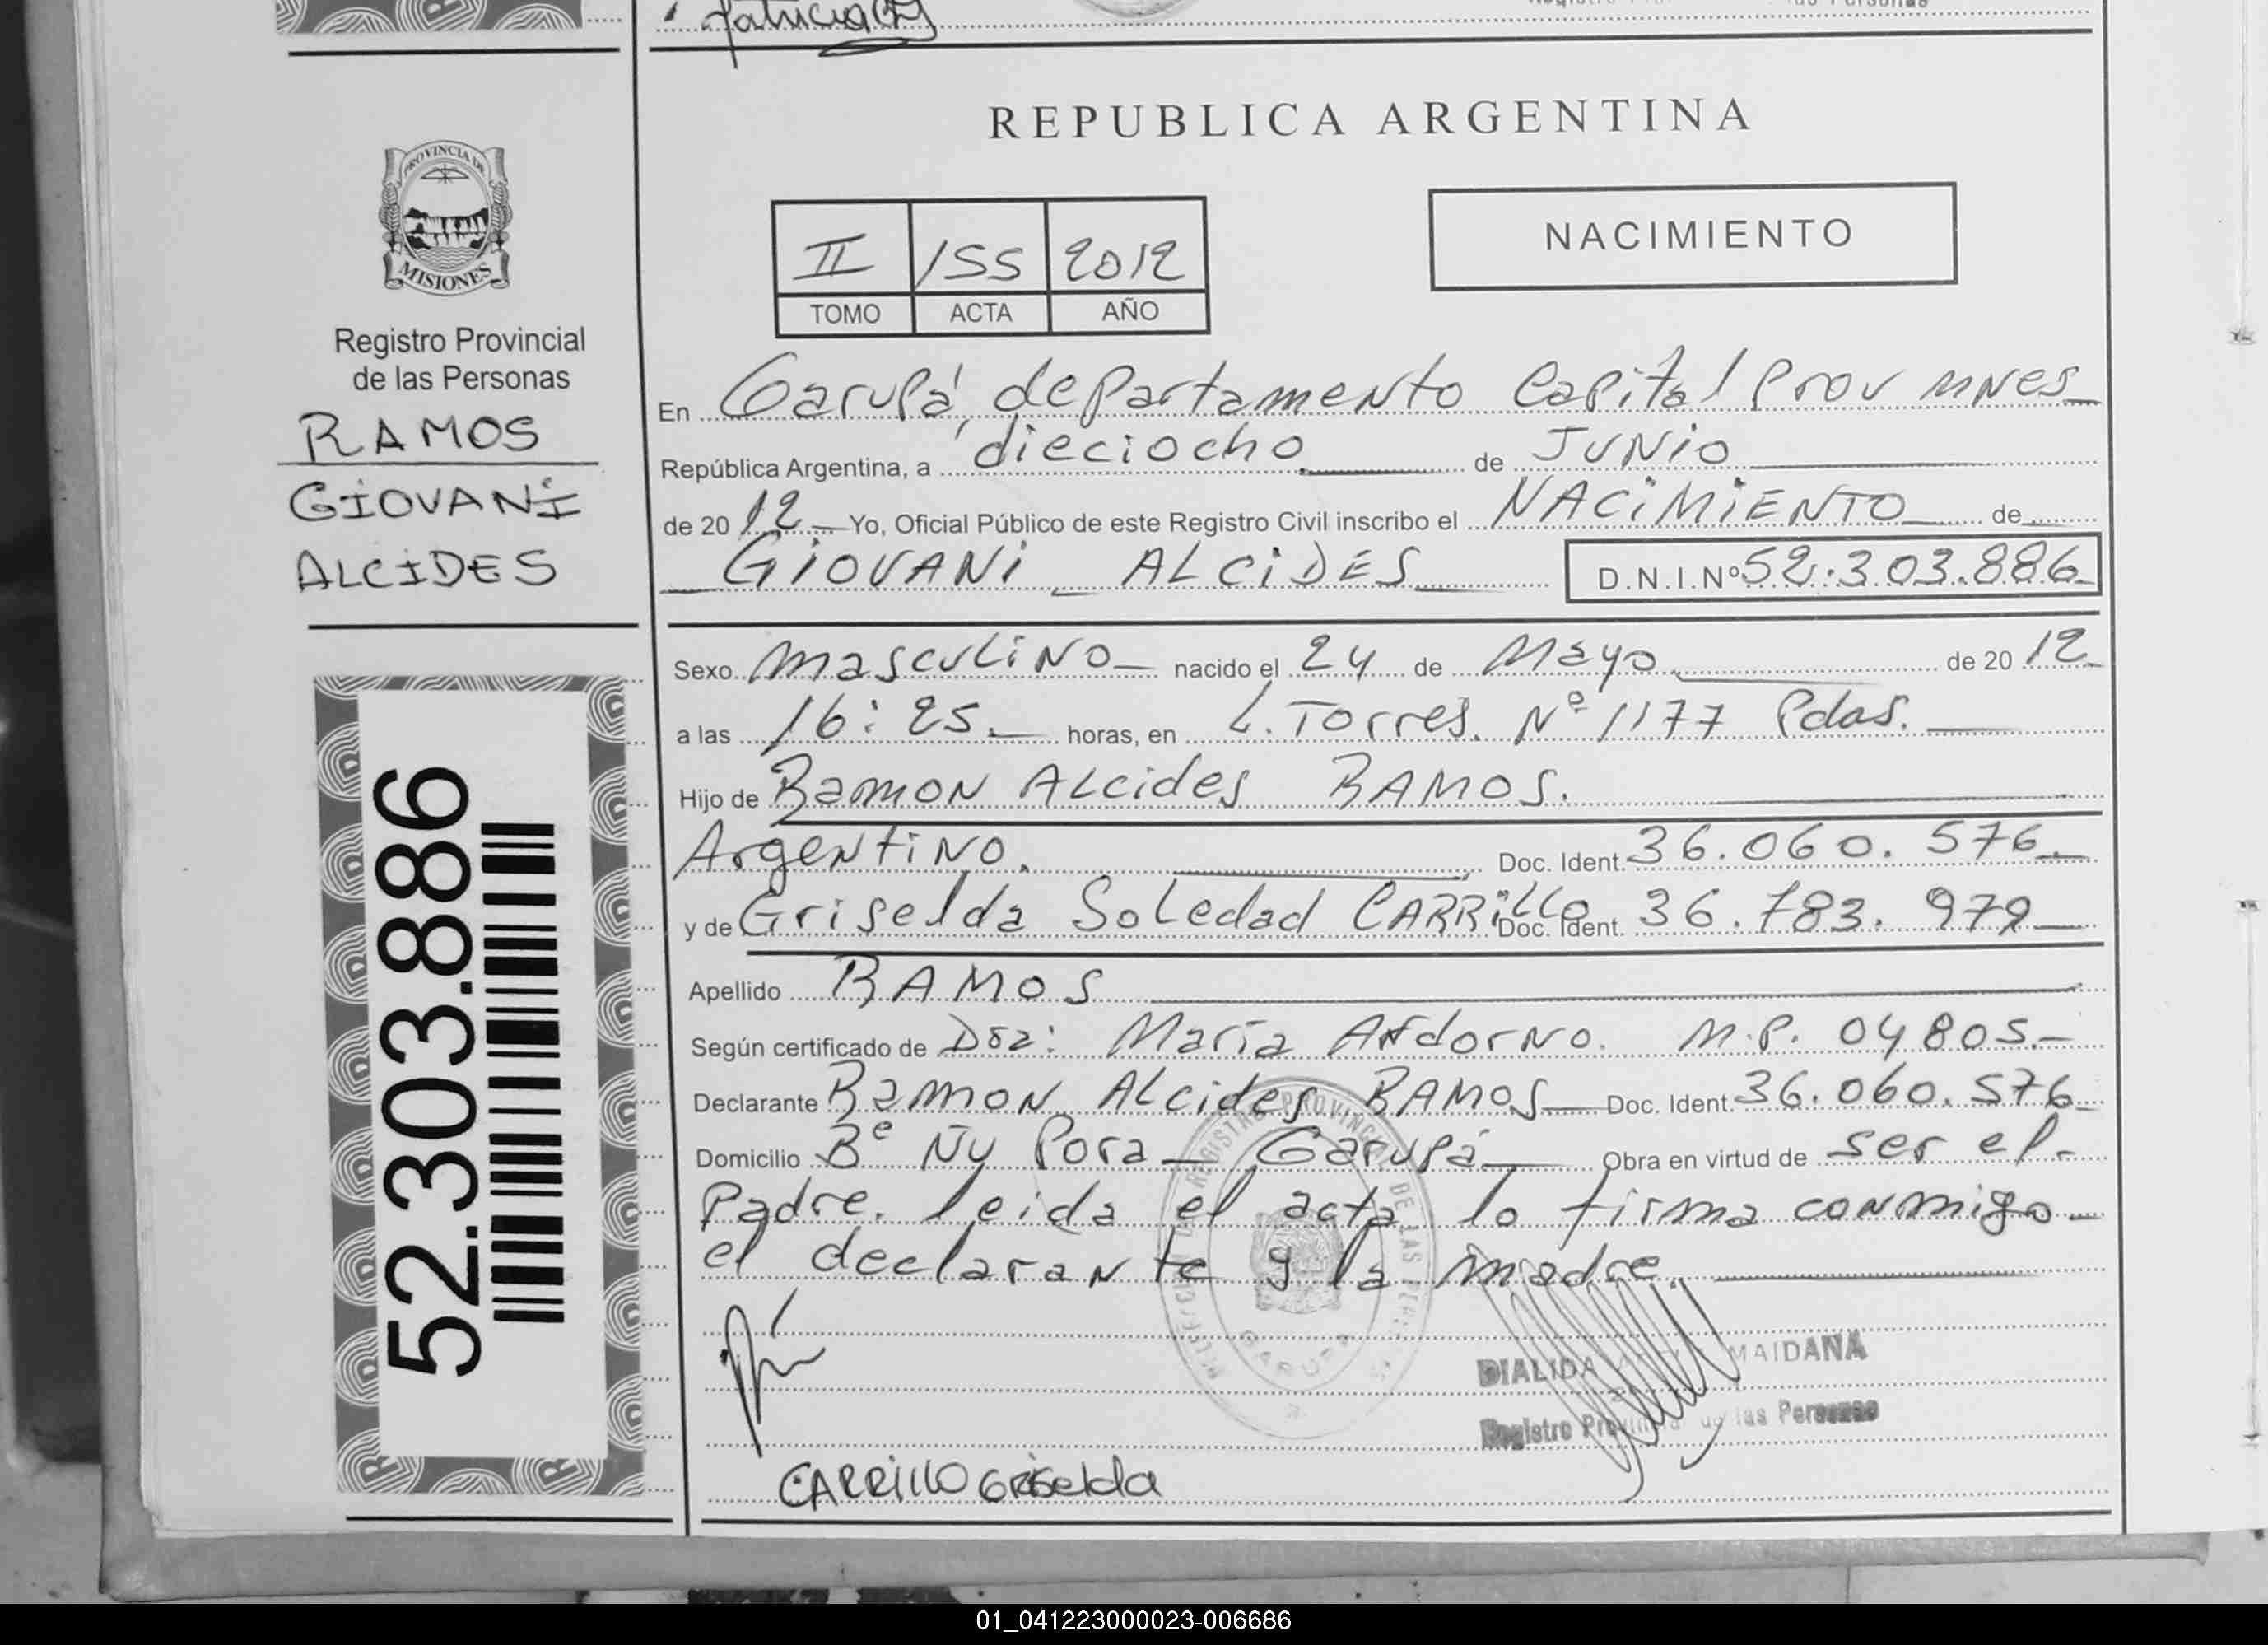 Patricia
REPUBLICA ARGENTINA
PROVINCIA DE
MISIONES
Registro Provincial
de las Personas
RAMOS
GIOVANI
ALCIDES
52.303.886
II 155 2012
TOMO ACTA AÑO
NACIMIENTO
En Garupá, departamento Capital Prov MNES
República Argentina, a dieciocho de JUNIO
de 2012 Yo, Oficial Público de este Registro Civil inscribo el NACIMIENTO de
GIOVANI ALCIDES D.N.I.Nº 52.303.886
Sexo masculino nacido el 24 de Mayo de 2012
a las 16:25. horas, en L. Torres. Nº 1177 Pdas.
Hijo de Ramon Alcides RAMOS.
Argentino. Doc. Ident. 36.060.576.
y de Griselda Soledad CARRillo Doc. Ident. 36.783.979
Apellido RAMOS
Según certificado de Dra: María Andorno. M.P. 04805.-
Declarante Ramon Alcides RAMOS Doc. Ident. 36.060.576
Domicilio Bº Ñu Pora - Garupá Obra en virtud de ser el
Padre. leida el acta lo firma conmigo
el declarante y la madre.
GARUPA
DIALIDA MAIDANA
Registro Provincial de las Personas
CARRILLO Griselda
01_041223000023-006686